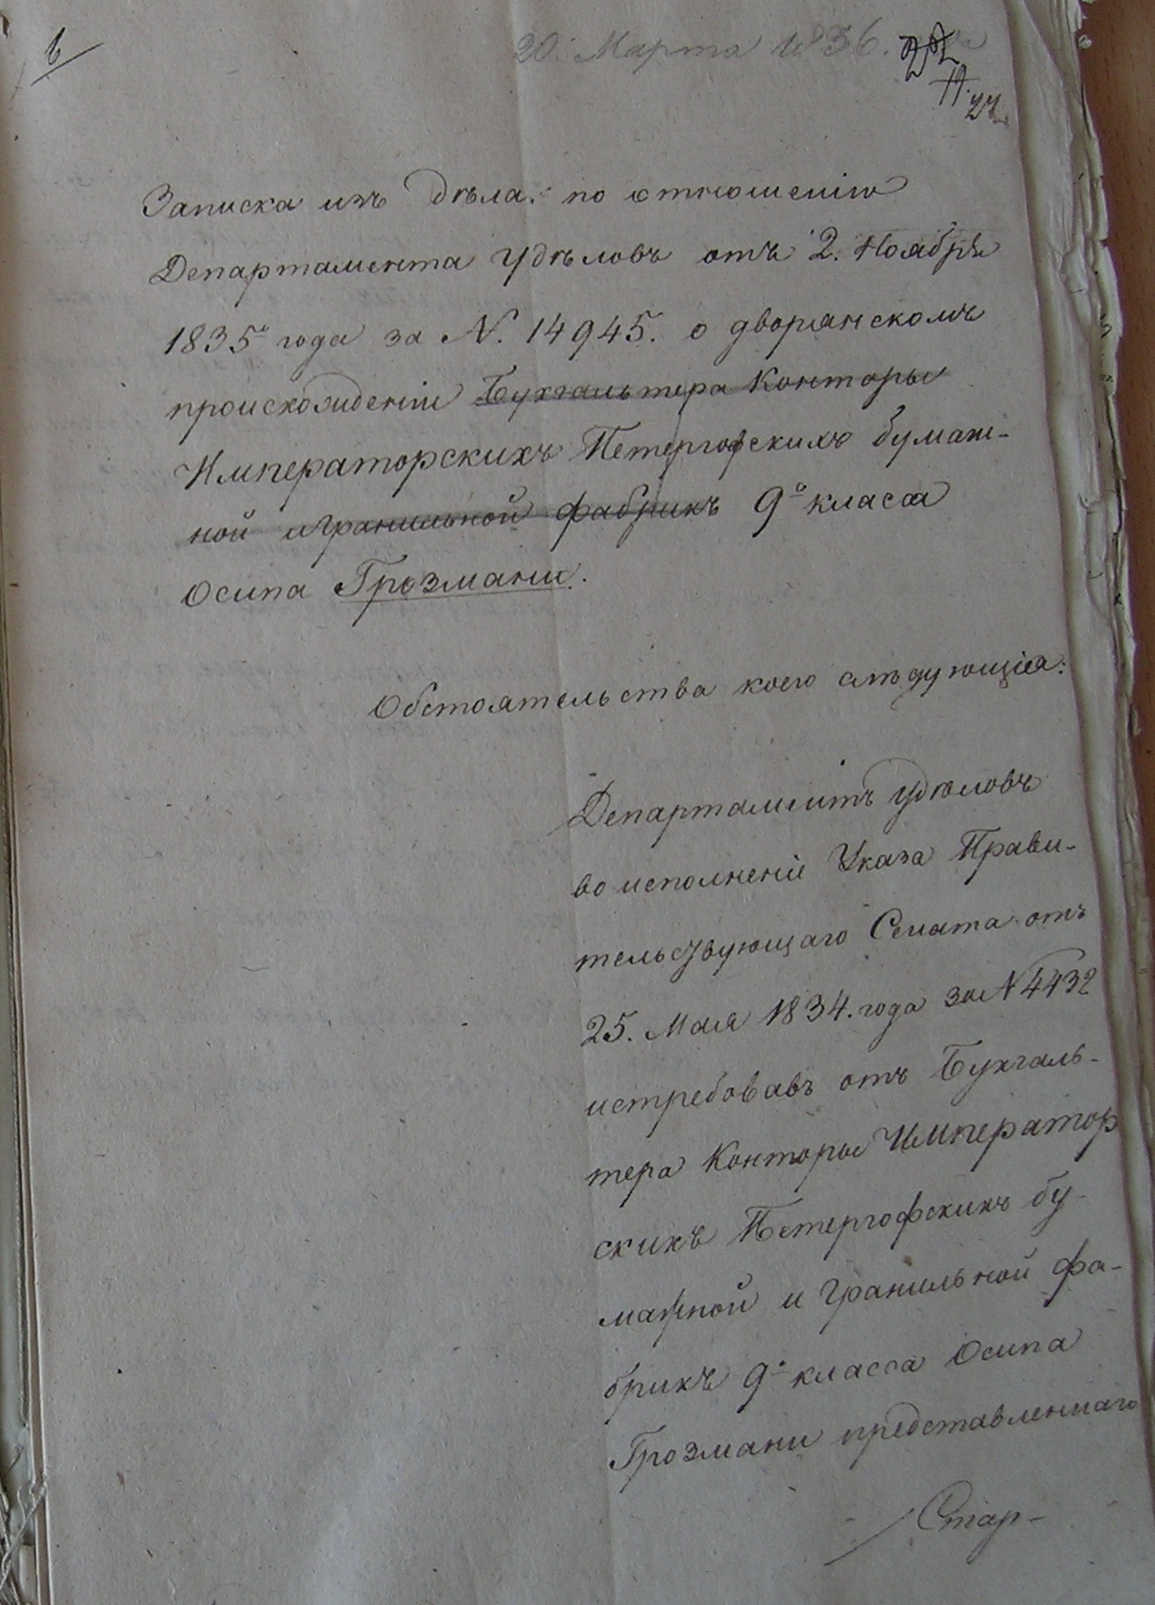 20. Марта 1836.
Записка изъ дѣла: по отношенію
Департамента Удѣловъ отъ 2. Ноября
1835 года за N. 14945. о дворянскомъ
происхожденіи Бухгальтера Конторы
Императорскихъ Петергофскихъ бумаж-
ной и гранильной фабрикъ 9о класса
Осипа Грозмани.
Обстоятельства коего слѣдующія:
Департаментъ Удѣловъ
во исполненіе Указа Прави-
тельствующаго Сената отъ
25. Мая 1834. года за N 4432
истребовавъ отъ Бухгаль-
тера Конторы Император
скихъ Петергофскихъ бу-
мажной и Гранильной фа-
брикъ 9о класса Осипа
Грозмани представленнаго
Стар-